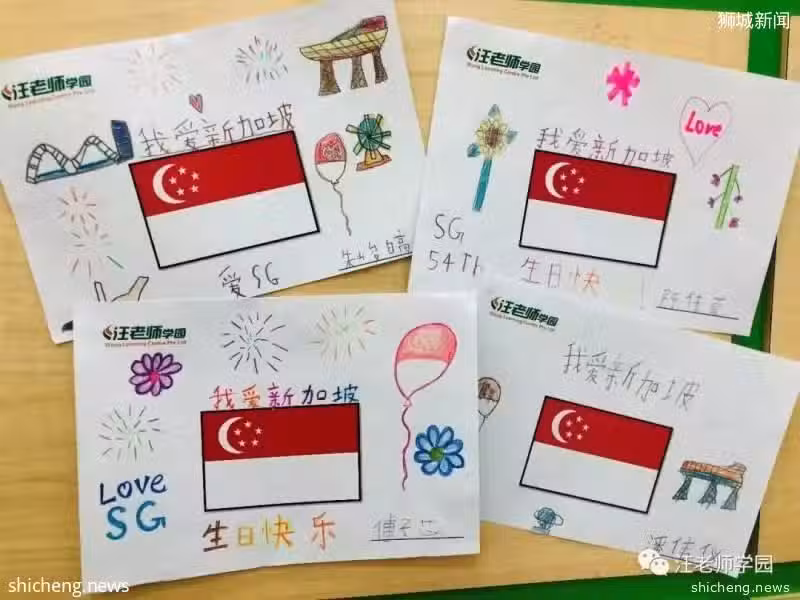 狮城新闻
汪老师学园
Wang Learning Centre Pte Ltd
我爱新加坡
爱SG
汪老师学园
Wang Learning Centre Pte Ltd
我爱新加坡
Love
SG
54Th
生日快
汪老师学园
Wang Learning Centre Pte Ltd
我爱新加坡
LOVE
SG
生日快乐
汪老师学园
Wang Learning Centre Pte Ltd
我爱新加坡
汪老师学园
shicheng.news
shicheng.news